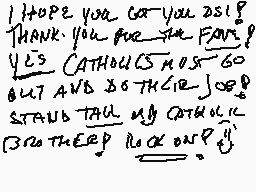 I HOPE YOU GOT YOU DSI!
THANK. YOU FOR THE FANS!
YES CATHOLICS MUST GO
OUT AND DO THEIR JOB!
STAND TALL MY CATHOLIC
BROTHER! ROCK ON!